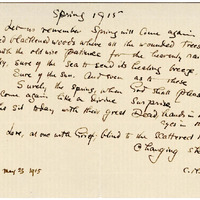 Spring 1915
Let us remember Spring will come again
blackened woods where all the wounded trees
with the old wise patience for the heavenly rain
Sure of the sea to send its healing breeze
Sure of the sun. And even as to these
Surely the Spring, when God shall please
come again like a divine surprise
sit today with their great Dead, hands in
eyes in
at one with Grief, blind to the scattered
Changing
May 23 1915
C. M.